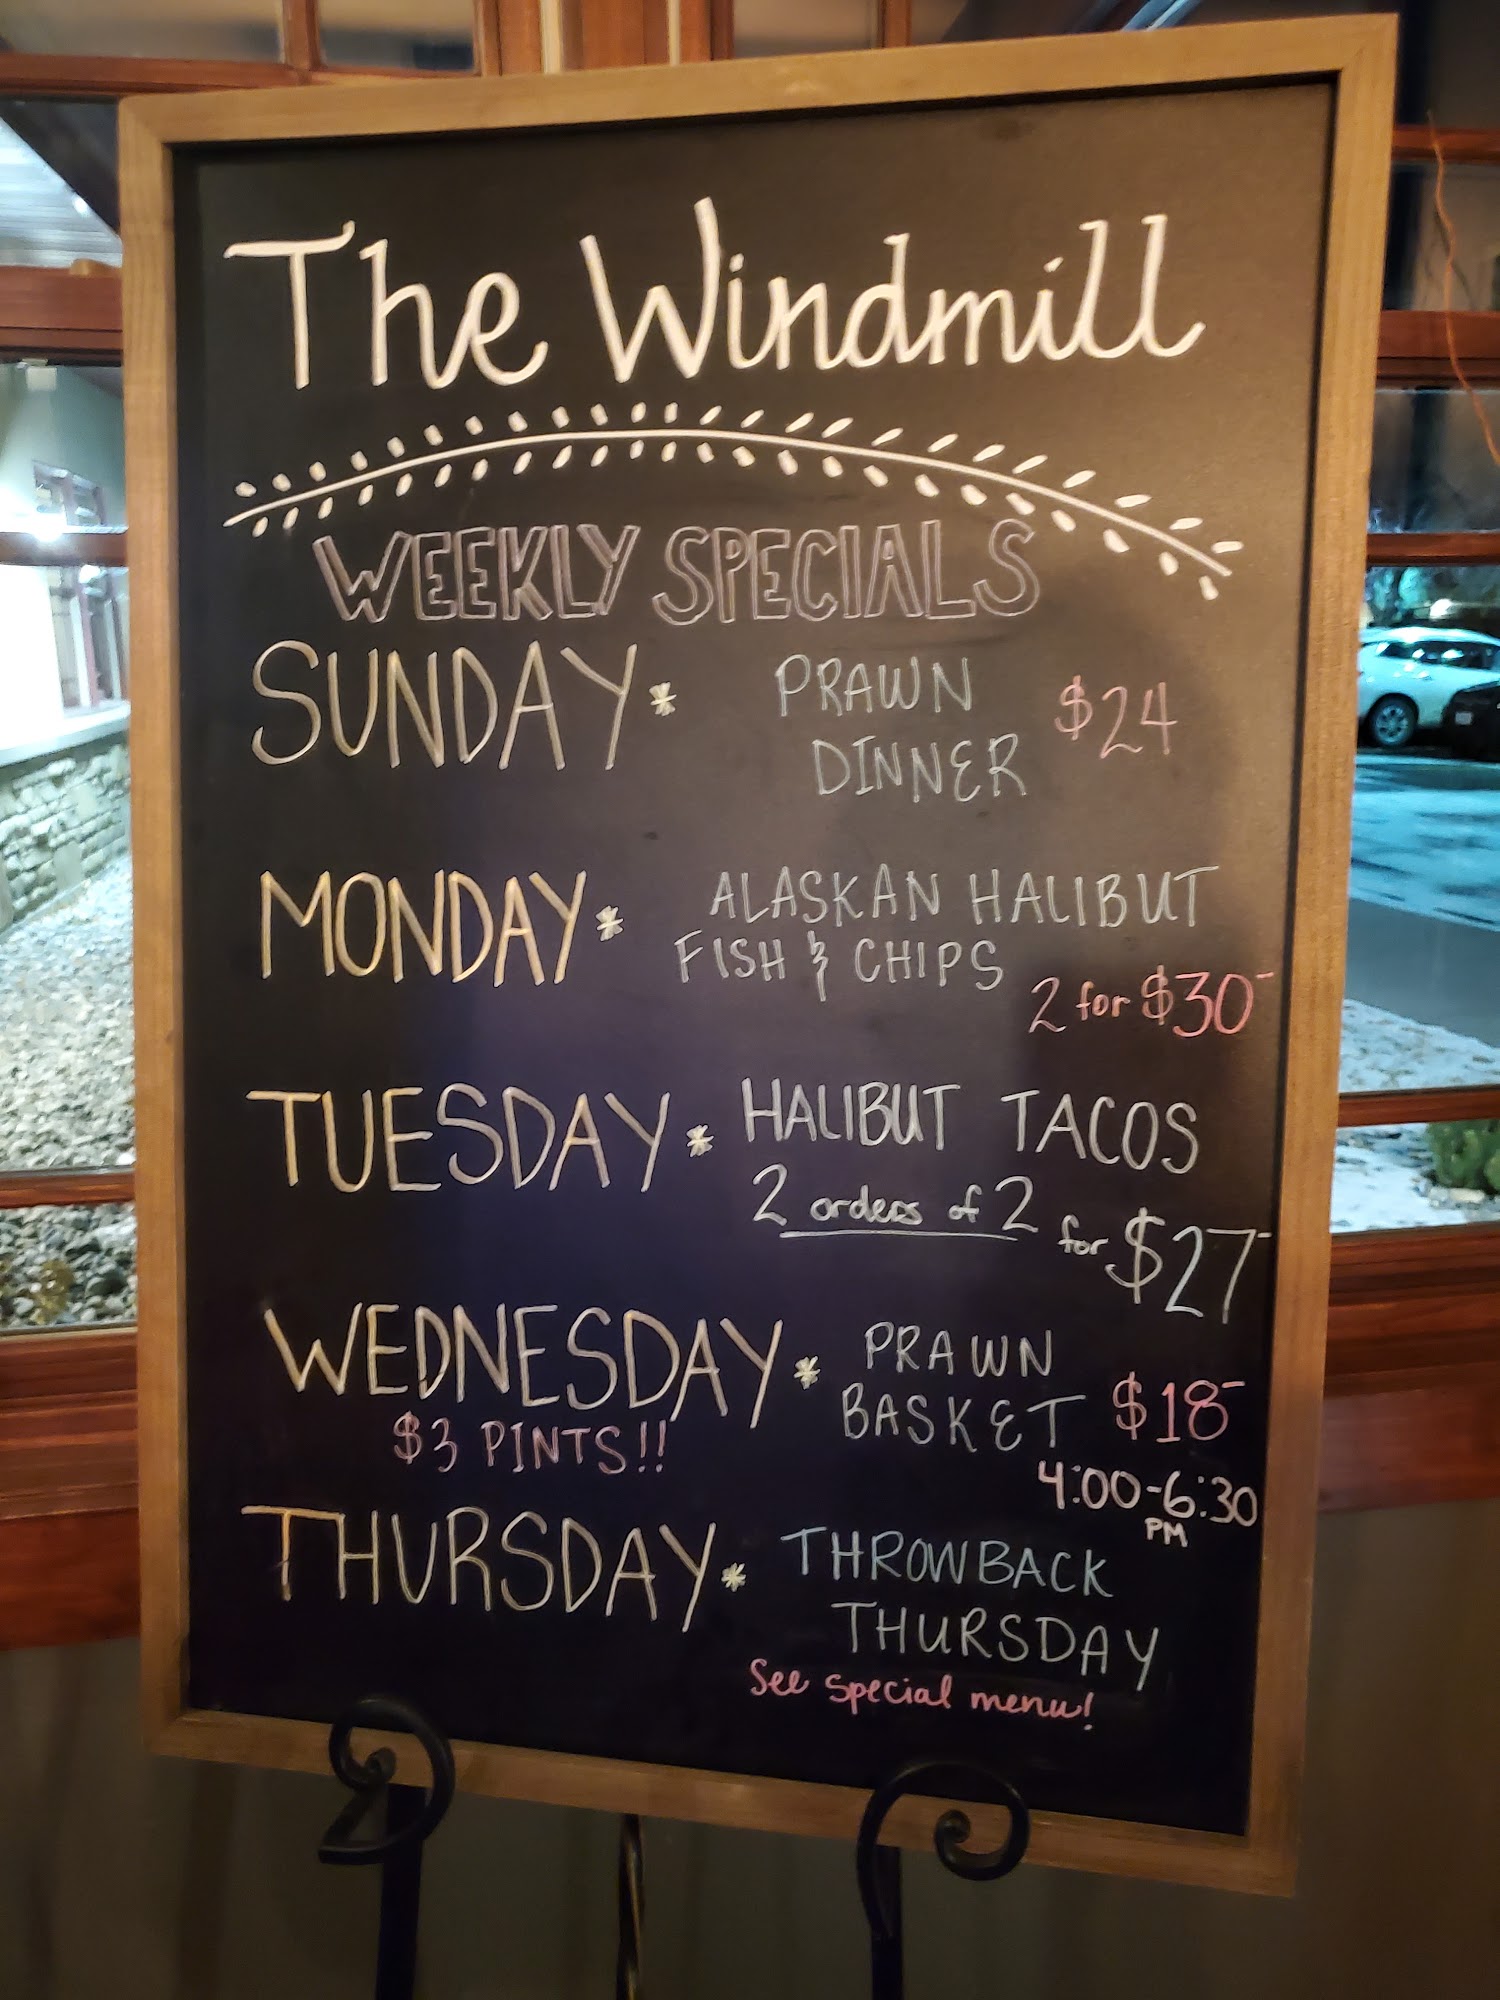 The Windmill
WEEKLY SPECIALS
SUNDAY* PRAWN DINNER $24
MONDAY* ALASKAN HALIBUT
FISH & CHIPS
2 for $30-
TUESDAY* HALIBUT TACOS
2 orders of 2 for $27-
WEDNESDAY* PRAWN
BASKET $18-
$3 PINTS!!
4:00-6:30
PM
THURSDAY* THROWBACK
THURSDAY
See special menu!